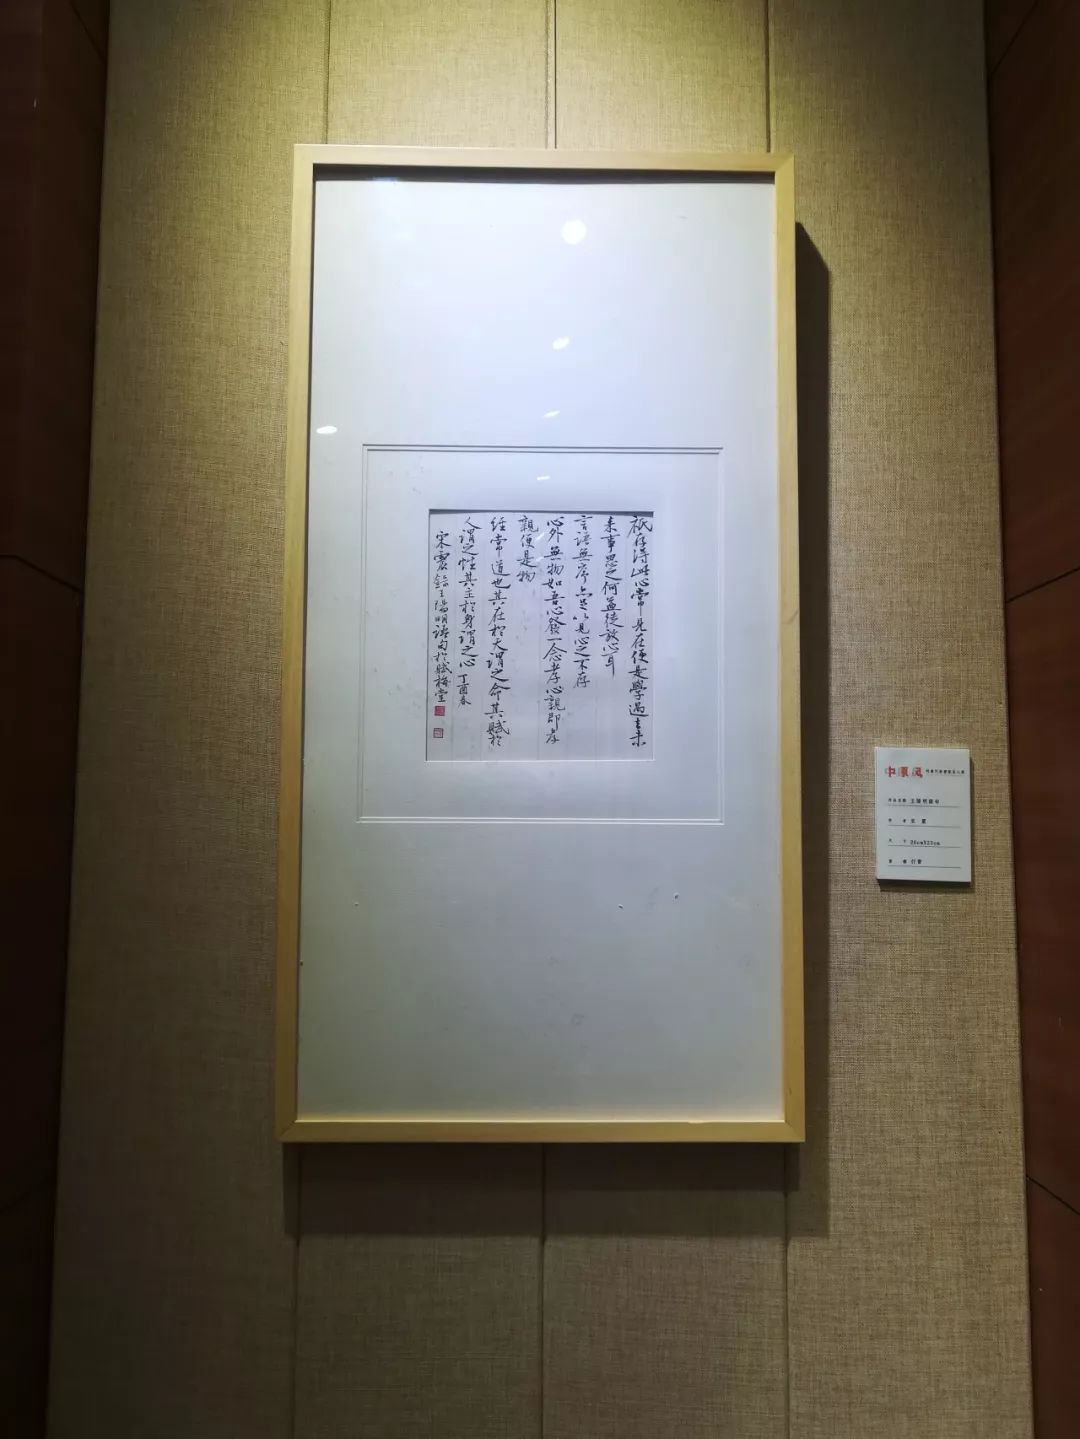 祇存得此心常見在便是學過去未
來事思之何益徒放心耳
言語無序亦足以見心之不存
心外無物如吾心發一念孝心親即孝
親便是物
經常道也其在於天謂之命其賦於
人謂之性其主於身謂之心 丁酉春
宋震錄王陽明語句於賦梅堂
中國風
王陽明語句
宋震
行書